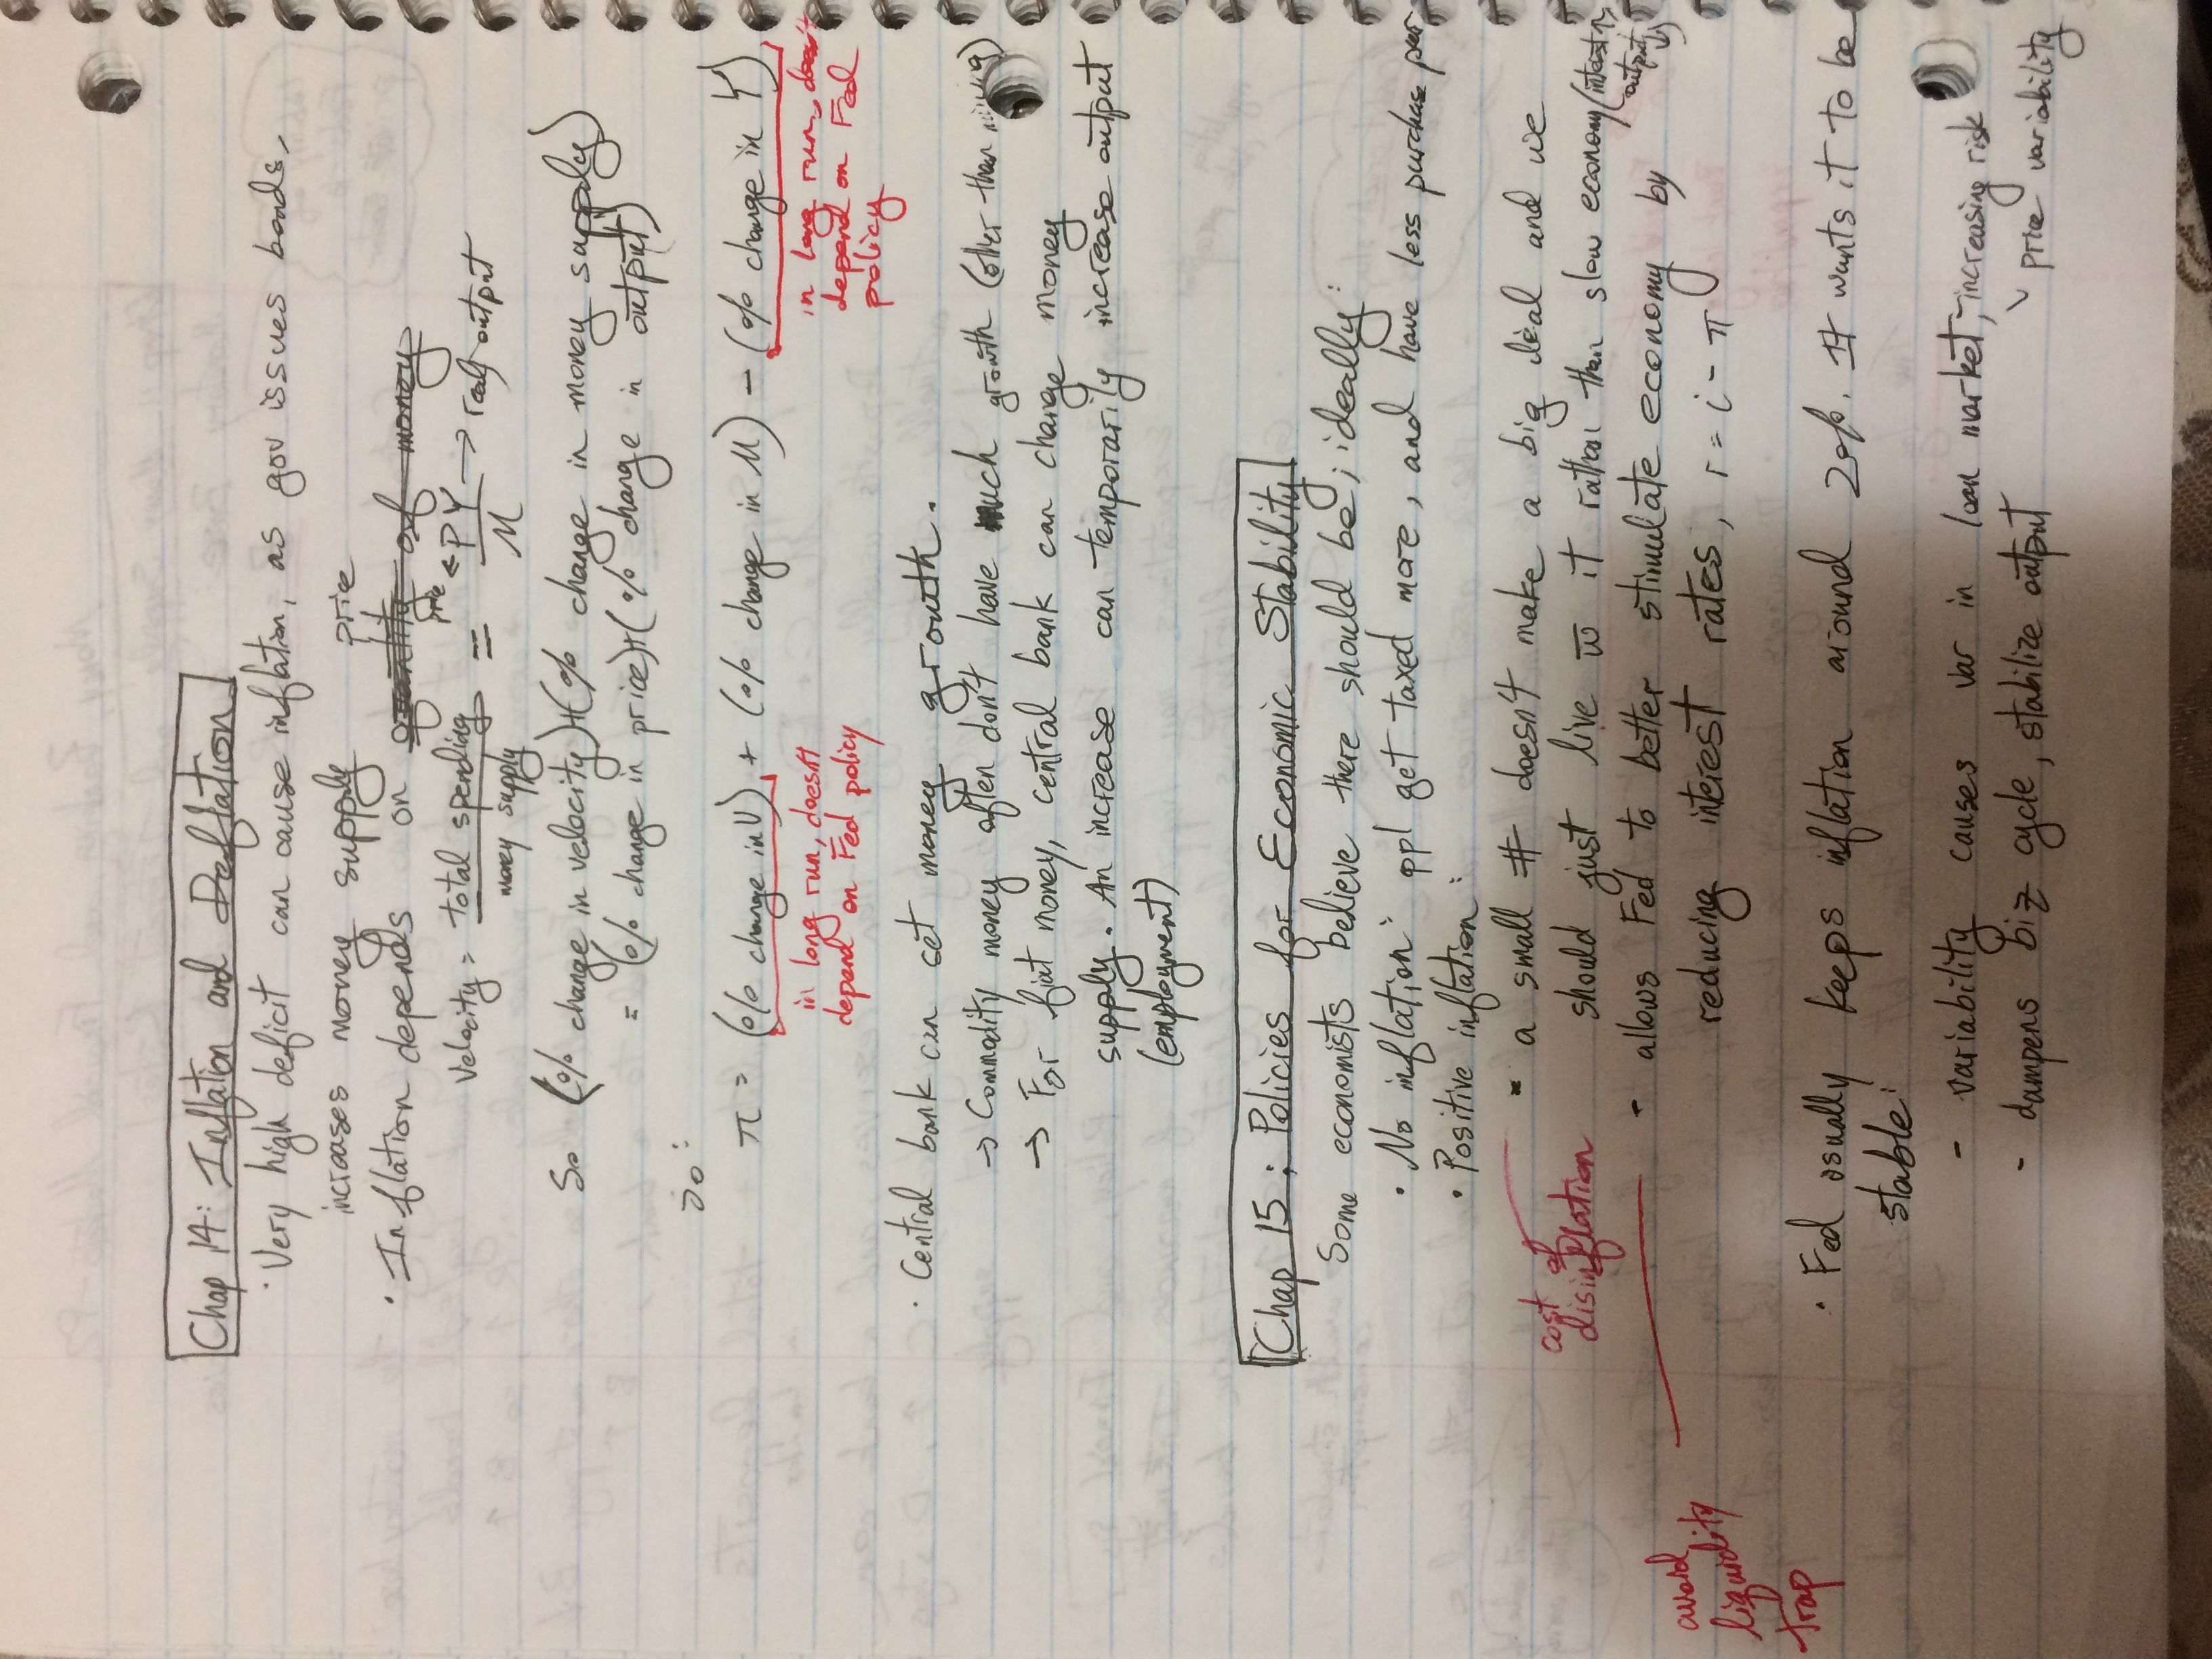 Chap 14: Inflation and Deflation
· Very high deficit can cause inflation, as gov issues bonds,
increases money supply
price
· Inflation depends on quantity of money
Velocity = total spending / money supply = price ← PY / M → real output
So (% change in velocity)+(% change in money supply)
= (% change in price)+(% change in output)
so:
π = (% change in V) + (% change in M) - (% change in Y)
in long run, doesn't
depend on Fed policy
in long run, doesn't
depend on Fed
policy
· Central bank can set money growth.
→ Commodity money often don't have much growth (other than mining)
→ For fiat money, central bank can change money
supply. An increase can temporarily increase output
(employment)
Chap 15: Policies for Economic Stability
Some economists believe there should be, ideally:
· No inflation: ppl get taxed more, and have less purchase pwr
· Positive inflation:
- a small # doesn't make a big deal and we
should just live w̅ it rather than slow economy (interest ↑,
output ↓)
cost of
disinflation
- allows Fed to better stimulate economy by
reducing interest rates, r = i - π
avoid
liquidity
trap
· Fed usually keeps inflation around 2%. It wants it to be
stable:
- variability causes var in loan market, increasing risk
price variability
- dampens biz cycle, stabilize output